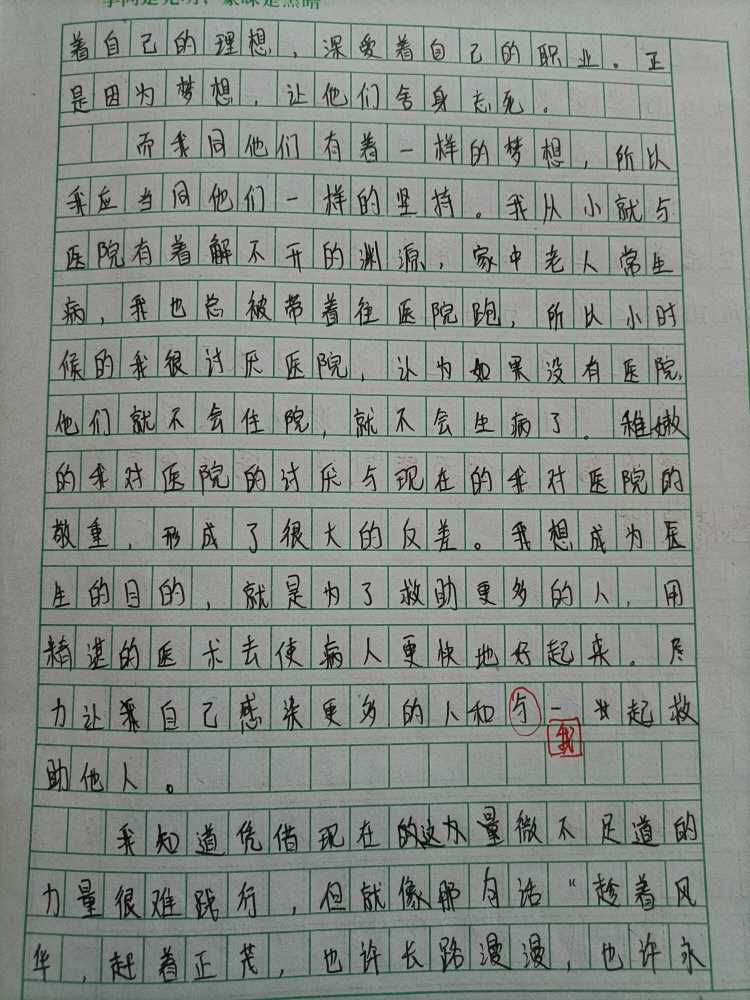 着自己的理想，深爱着自己的职业。正
是因为梦想，让他们舍身忘死。
而我同他们有着一样的梦想，所以
我应当同他们一样的坚持。我从小就与
医院有着解不开的渊源，家中老人常生
病，我也总被带着往医院跑，所以小时
候的我很讨厌医院，认为如果没有医院，
他们就不会住院，就不会生病了。稚嫩
的我对医院的讨厌与现在的我对医院的
敬重，形成了很大的反差。我想成为医
生的目的，就是为了救助更多的人，用
精湛的医术去使病人更快地好起来。尽
力让我自己感染更多的人和与一起救
我
助他人。
我知道凭借现在的量微不足道的
力量很难践行，但就像那句话“趁着风
华，赶着正茂，也许长路漫漫，也许永